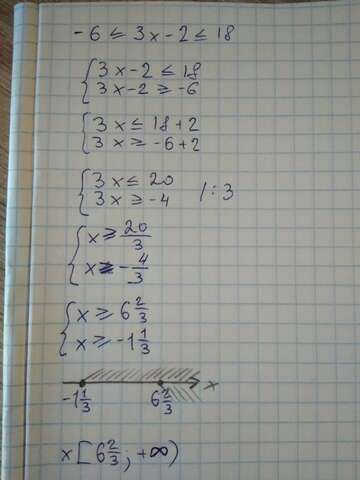 -6 ≤ 3x-2 ≤ 18
{3x-2 ≤ 18
3x-2 ≥ -6
{3x ≤ 18+2
3x ≥ -6+2
{3x ≤ 20
3x ≥ -4 /:3
{x ≥ 20/3
x ≥ -4/3
{x ≥ 6 2/3
x ≥ -1 1/3
x
-1 1/3 6 2/3
x [6 2/3; +∞)